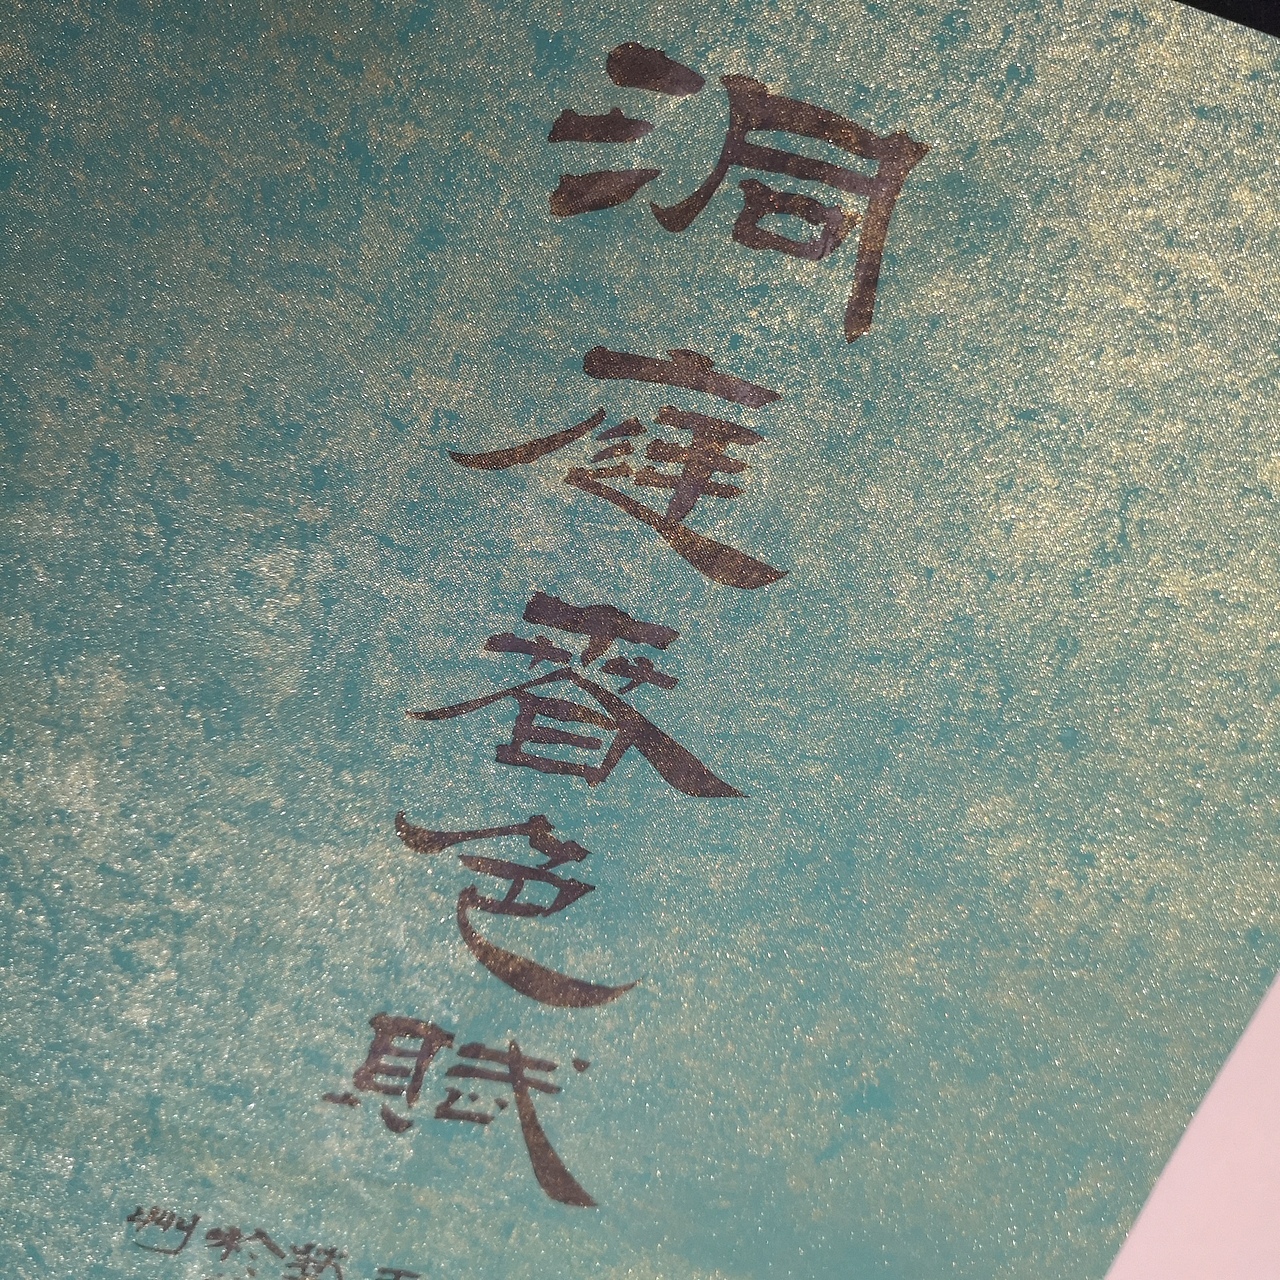 洞庭春色賦